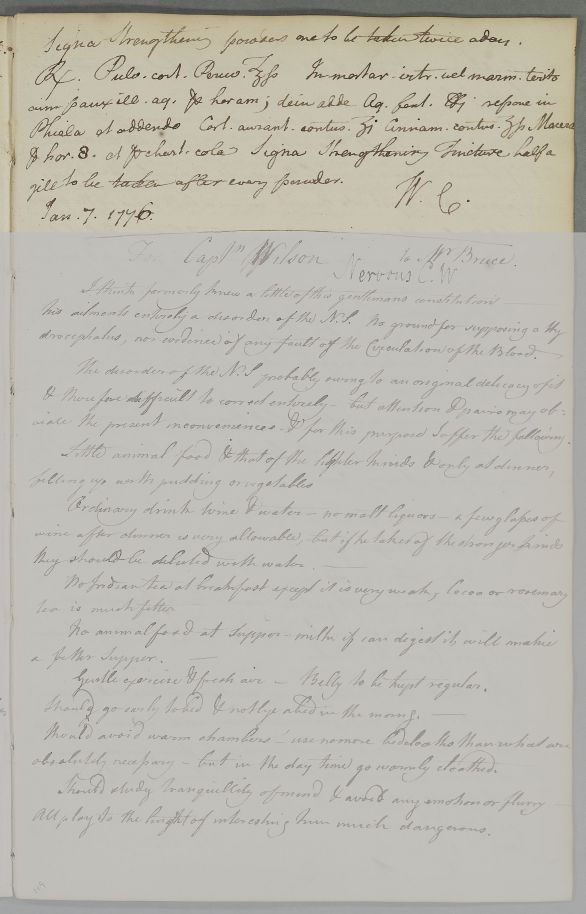 Signa Strengthening powders one to be taken twice aday.
Rx. Pulv. cort. Peruv. ℥ſs In mortar. vitr. vel marm. terito
cum pauxill. aq. ℔ horam; dein adde Aq. font. ℔j repone in
Phiala et addendo Cort. aurant. contus. ʒi Cinnam. contus. ʒſs Macera
hor. 8. et chart. cola Signa Strengthening Tincture half a
gill to be taken after every powder.
W. C.
Jan. 7. 1776.
For Captn. Wilson to Mr Bruce.
Nervous C. W
I think formerly knew a little of this gentlemans constitution —
his ailments entirely a disorder of the N.S. No ground for supposing a Hy
drocephalus, nor evidence of any fault of the Circulation of the Blood. —
The disorder of the N.S. probably owing to an original delicacy of it
& therefore difficult to correct entirely — but attention & may ob-
viate the present inconveniences & for this purpose I offer the following.
Little animal food & that of the lighter kinds & only at dinner,
filling up with pudding or vegetables
Ordinary drink wine & water — no malt liquors — a few glasses of
wine after dinner is very allowable, but if he takes of the stronger kinds
they should be diluted with water. —
No Indian tea at breakfast except it is very weak, Cocoa or rosemary
tea is much fitter
No animal food at supper — milk if can digest it, will make
a fitter supper. —
Gentle exercise & fresh air — Belly to be kept regular.
Should go early to bed & not lye abed in the morng. —
Should avoid warm chambers — use no more bedcloaths than what are
absolutely necessary — but in the day time go warmly cloathed.
Should study tranquillity of mind & avoid any emotion or flurry —
All play to the height of interesting him much dangerous.